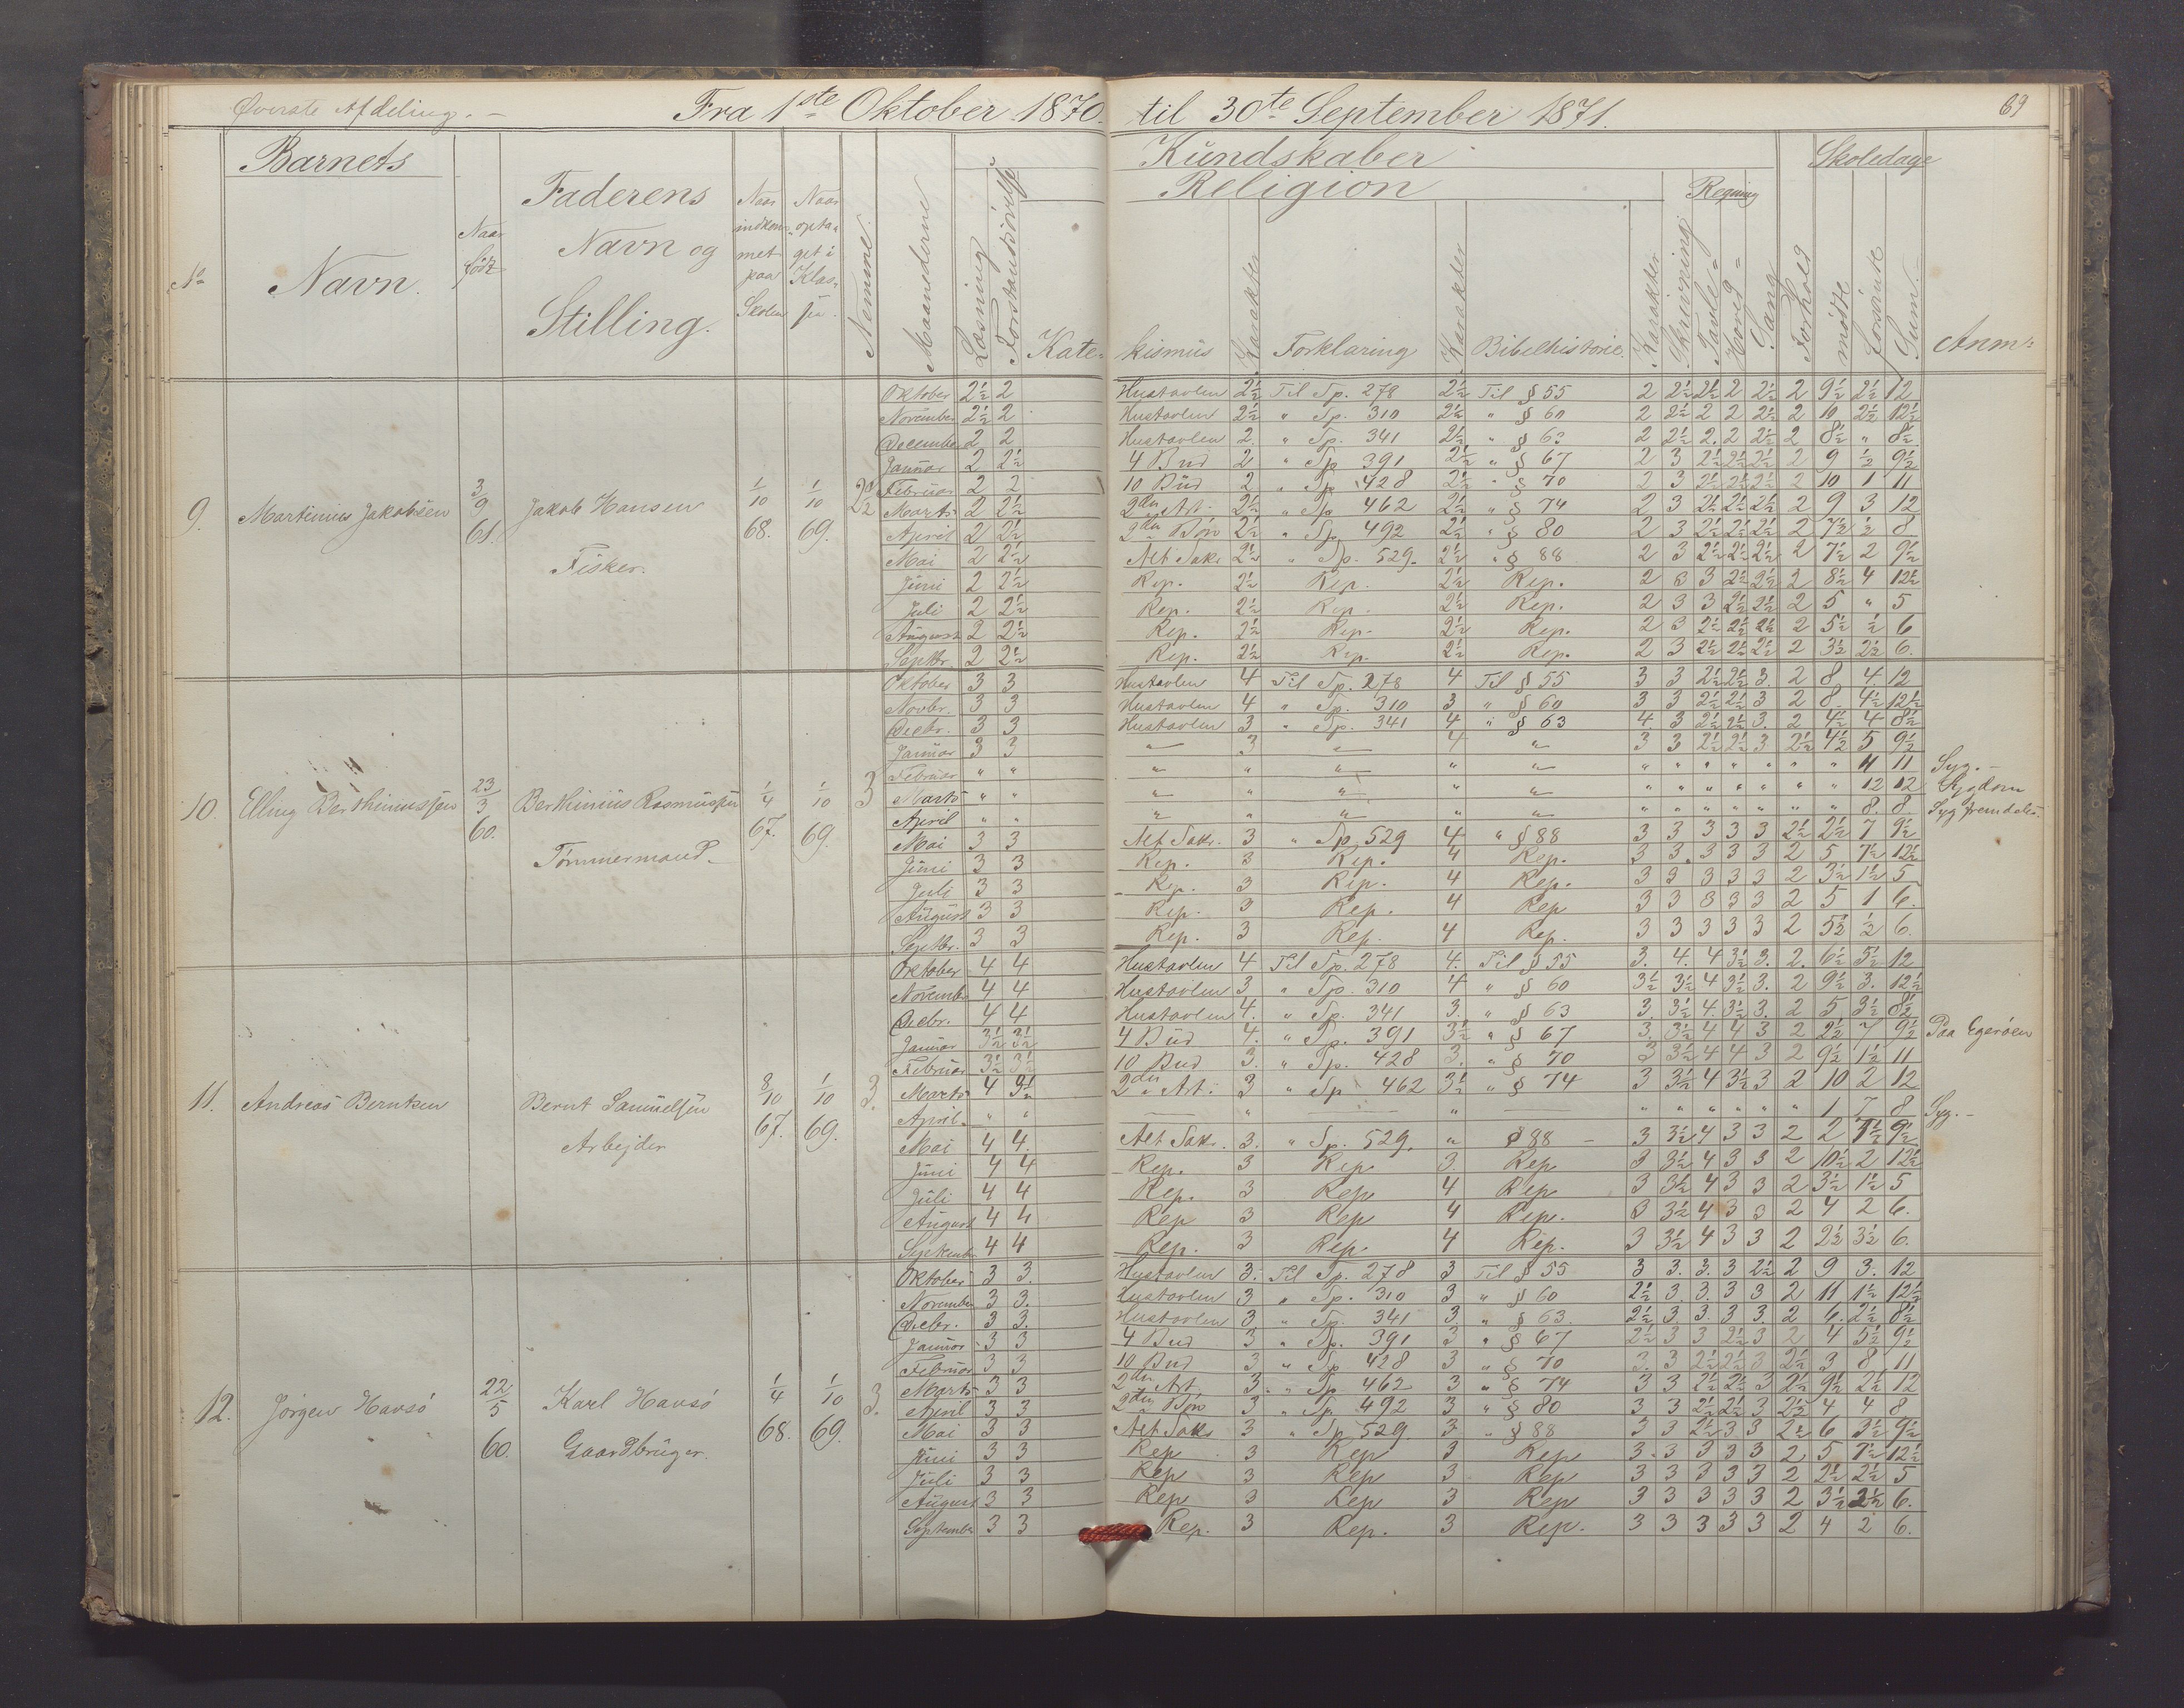 Øverste Afdeling. – Fra 1ste Oktober 1870. til 30te September 1871. 69
Barnets Kundskaber Skoledage
Religion Regning
No Navn. Naar født Faderens Navn og Stilling. Naar indkommet paa Skolen Naar optaget i Klassen. Nemme. Maanederne Læsning Forstandsøvelse Katekismus Karakter Forklaring Karakter Bibelhistorie. Karakter Skrivning Tavle= Hoved= Sang Forhold mødte forsømte Sum. Anm:
9. Martinius Jakobsen 3/9 61. Jakob Hansen Fisker. 1/10 68. 1/10 69.
Oktober 2½ 2 Hustavlen 2½ Til Sp. 278 2½ Til § 55 2 2½ 2½ 2 2½ 2 9½ 2½ 12
November 2½ 2 Hustavlen 2½ " Sp. 310 2½ " § 60 2 2½ 2 2 2½ 2 10 2½ 12½
December 2 2 Hustavlen 2. " Sp. 341 2½ " § 63 2 2½ 2. 2 2½ 2 8½ " 8½
Januar 2 2½ 4 Bud 2 " Sp 391 2½ " § 67 2 3 2½ 2½ 2½ 2 9 ½ 9½
Februar 2 2 10 Bud 2 " Sp 428 2½ " § 70 2 3 2½ 2½ 2½ 2 10 1 11
Marts 2 2½ 2den Art. 2½ " Sp 462 2½ " § 74 2 3 2½ 2½ 2½ 2 9 3 12
April 2 2½ 2den Bøn 2½ " Sp 492 2½ " § 80 2 3 2½ 2½ 2½ 2 7½ ½ 8
Mai 2 2½ Alt Sakr 2½ " Sp. 529. 2½ " § 88 2 3 2½ 2½ 2½ 2 7½ 2 9½
Juni 2 2½ Rep. 2½ Rep. 2½ Rep. 2 3 3 2½ 2½ 2 8½ 4 12½
Juli 2 2½ Rep. 2½ Rep. 2½ Rep. 2 3 3 2½ 2½ 2 5 " 5
August 2 2½ Rep. 2½ Rep. 2½ Rep. 2 3 2½ 2½ 2½ 2 5½ ½ 6
Septbr. 2 2½ Rep. 2½ Rep. 2½ Rep. 2 3 2½ 2½ 2½ 2 3½ 2½ 6.
10. Elling Berthiniussen 23/3 60. Berthinius Rasmussen Tømmermand. 1/4 67. 1/10 69. 3
Oktober 3 3 Hustavlen 4 Til Sp. 278 4 Til § 55 3 3 2½ 2½ 3. 2 8 4. 12
Novbr. 3 3 Hustavlen 4 " Sp. 310 3 " § 60 3 3 2½ 2½ 3 2 8. 4½ 12½
Decbr. 3 3 Hustavlen 3 " Sp. 341 4 " § 63 4. 3 2½ 2½ 3. 2 4½ 4 8½
Januar 3 3 " 3 " 4 " 3 3 2½ 2½ 3 2½ 4½ 5 9½
Februar " " " " " " " " " " " " " " 11 11 Syg. –
Marts " " " " " " " " " " " " " " 12 12 Sygdom
April " " " " " " " " " " " " " " 8. 8 Syg fremdeles.
Mai 3 3 Alt Sakr. 3 " Sp 529 4 " § 88 3 3 3 3 3 2½ 2½ 7 9½
Juni 3 3 Rep. 3 Rep. 4 Rep. 3 3. 3 3 3 2 5 7½ 12½
Juli 3 3 Rep. 3 Rep. 4 Rep. 3 3 3 3 3 2 3½ 1½ 5
August 3 3 Rep. 3 Rep. 4 Rep 3 3 3 3 3 2 5 1 6.
Septbr. 3 3 Rep. 3 Rep. 4 Rep. 3 3 3 3 3 2 5½ ½ 6.
11. Andreas Berntsen Bernt Samuelsen Arbejder 8/10 67. 1/10 69. 3.
Oktober 4 4 Hustavlen 4 Til Sp. 278 4. Til § 55 3. 4. 4 3½ 3. 2. 6½ 5½ 12
Novembr 4 4 Hustavlen 3 " Sp. 310 4 " § 60 3½ 3½ 4 3½ 3. 2 9½ 3. 12½
Decbr. 4 4 Hustavlen 4. " Sp. 341 3. " § 63 3. 3½ 4. 3½ 3. 2 5 3½ 8½
Januar 3½ 3½ 4 Bud 4. " Sp. 391 3½ " § 67 3. 3½ 4 4 3 2 2½ 7 9½ Paa Egerøen
Februar 3½ 3½ 10 Bud 3. " Sp. 428 3. " § 70 3 3½ 4 4 3 2 9½ 1½ 11
Marts 4 3½ 2den Art. 3 " Sp 462 3½ " § 74 3 3½ 4 3½ 3 2 10 2 12
April " " — " — " — " " " " " " 1 7 8 Syg. –
Mai 4 4. Alt Sakr. 3. " Sp. 529. " § 88 – 3 3½ 4 3 3 2 2 7½ 9½
Juni 4 4 Rep. 3 Rep 3. Rep 3 3½ 4 3 3 2 10½ 2 12½
Juli 4 4 Rep. 3 Rep 4 Rep 3 3½ 4 3 3 2 3½ 1½ 5
August 4 4 Rep 3 Rep 4 Rep. 3 3½ 4 3 3 2 4 2 6.
Septembr 4 4 Rep. 3 Rep. 4 Rep. 3 3½ 4 3 3 2 2½ 3½ 6.
12. Jørgen Havsø 22/5 60. Karl Havsø Gaardbruger. 1/4 68. 1/10 69. 3.
Oktober 3 3. Hustavlen 3. Til Sp. 278 3 Til § 55 3 3. 3. 3 2½ 2 9 3. 12
November 3 3. Hustavlen 3 " Sp. 310 3 " § 60 2½ 3. 3. 3 3 2 11 1½ 12½
Decbr. 3 3. Hustavlen 3. " Sp. 341 3. " § 63. 2½ 3. 3. 3 3. 2 6. 2½ 8½
Januar 3 3 4 Bud 3 " Sp. 391 3 " § 67 2½ 3 3 2½ 3 2 4 5½ 9½
Februar 3 3 10 Bud 3 " Sp 428 3 " § 70 3. 3 2½ 2½ 3 2½ 3 8 11
Marts 3 3 2den Art 3. " Sp. 462 3 " § 74 3 3 2½ 2½ 3 2½ 9½ 2½ 12
April 3 3 2den Bøn 3 " Sp. 492 3 " § 80 3 3 2½ 2½ 3 2½ 4 4 8
Mai 3 3 Alt Sakr 3 " Sp 529. 3 " § 88 3 3 2½ 3 3 2½ 6 3½ 9½
Juni 3 3 Rep 3 Rep 3 Rep 3. 3 3 3 3 2. 5 7½ 12½
Juli 3 3 Rep 3 Rep 3. Rep 3 3 3 3 3 2 2½ 2½ 5
August 3 3 Rep 3 Rep 3 Rep 3 3 3 3 3 2 3½ 2½ 6.
September 3 3 Rep. 3 Rep. 3 Rep. 3 3 3 3 3 2 4 2 6.